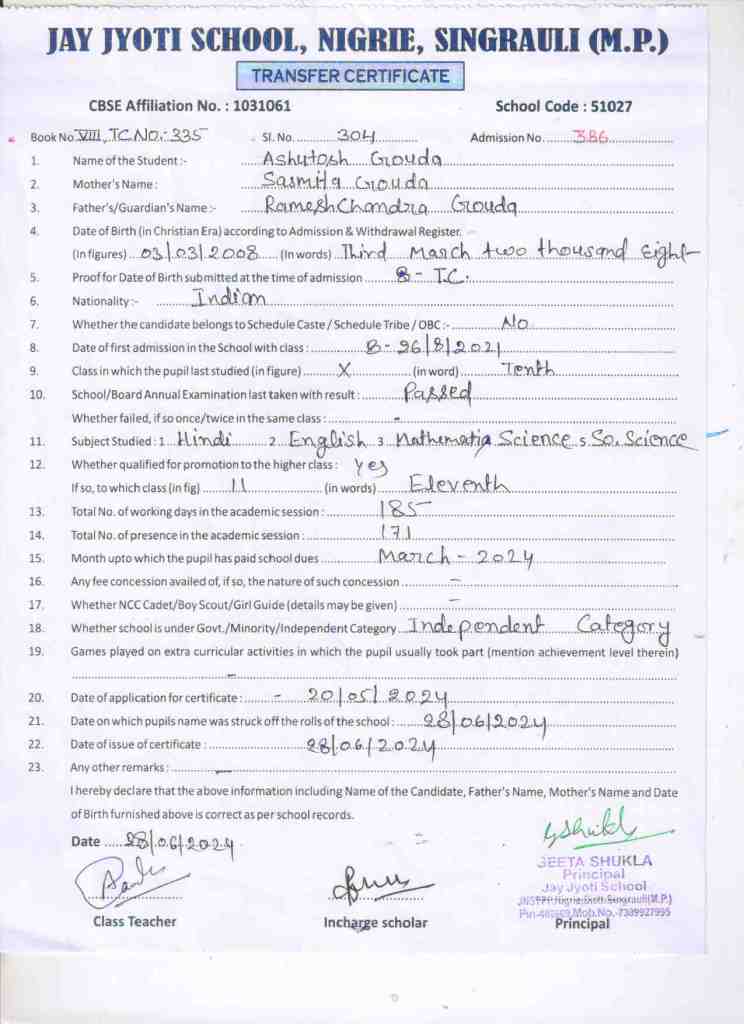 JAY JYOTI SCHOOL, NIGRIE, SINGRAULI (M.P.)
TRANSFER CERTIFICATE
CBSE Affiliation No. : 1031061 School Code : 51027
Book No. VIII, T.C No.: 335 Sl. No. 304 Admission No. 386
1. Name of the Student :- Ashutosh Gouda
2. Mother's Name : Sasmita Gouda
3. Father's/Guardian's Name :- Ramesh Chandra Gouda
4. Date of Birth (in Christian Era) according to Admission & Withdrawal Register.
(In figures) 03/03/2008 (In words) Third March two thousand Eight
5. Proof for Date of Birth submitted at the time of admission 8 - T.C.
6. Nationality :- Indian
7. Whether the candidate belongs to Schedule Caste / Schedule Tribe / OBC :- No
8. Date of first admission in the School with class : 8 - 26/8/2021
9. Class in which the pupil last studied (in figure) X (in word) Tenth
10. School/Board Annual Examination last taken with result : Passed
Whether failed, if so once/twice in the same class : -
11. Subject Studied : 1 Hindi 2 English 3 Mathematics Science 5 So. Science
12. Whether qualified for promotion to the higher class : Yes
If so, to which class (in fig) 11 (in words) Eleventh
13. Total No. of working days in the academic session : 185
14. Total No. of presence in the academic session : 171
15. Month upto which the pupil has paid school dues March - 2024
16. Any fee concession availed of, if so, the nature of such concession -
17. Whether NCC Cadet/Boy Scout/Girl Guide (details may be given) -
18. Whether school is under Govt./Minority/Independent Category Independent Category
19. Games played on extra curricular activities in which the pupil usually took part (mention achievement level therein)
-
20. Date of application for certificate : - 20/05/2024
21. Date on which pupils name was struck off the rolls of the school : 28/06/2024
22. Date of issue of certificate : 28/06/2024
23. Any other remarks : -
I hereby declare that the above information including Name of the Candidate, Father's Name, Mother's Name and Date
of Birth furnished above is correct as per school records.
Date 28/06/2024
GShukla
GEETA SHUKLA
Principal
Jay Jyoti School
Mob.No.-7389927995
Class Teacher Incharge scholar Principal